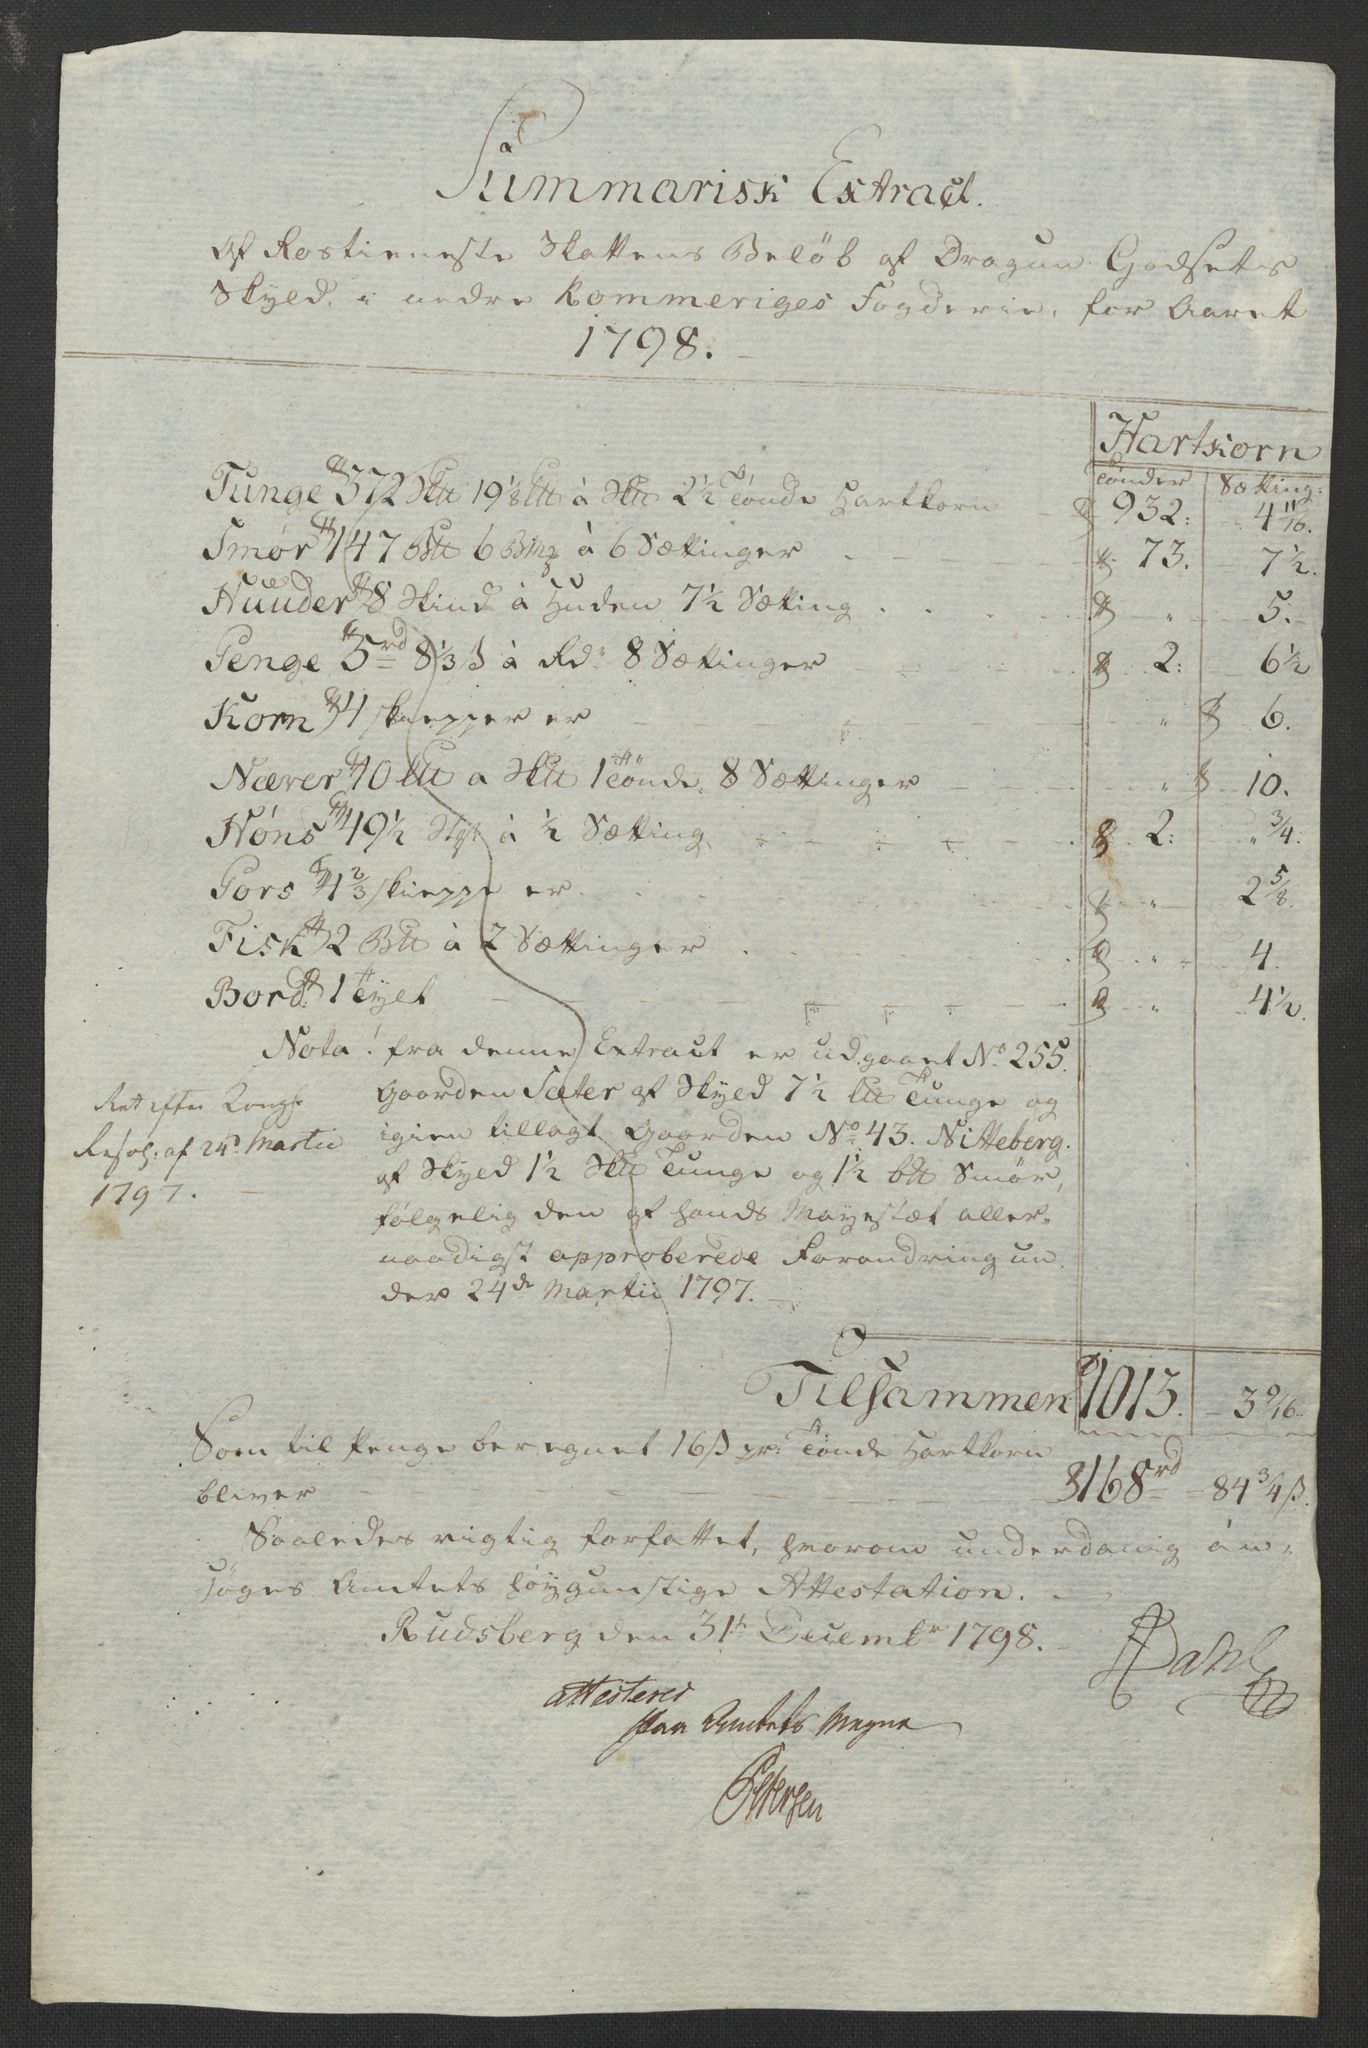 Summarisk Extract.
Af Rostieneste Skattens Beløb af Dragun Godsets
Skyld i nedre Rommeriges Fogderie, for Aaret
1798.
Hartkorn
Tønder Sætting:
Tunge 372 Sk℔ 19⅛ ℔ à Sk℔ 2½ Tønde Hartkorn 932: 4 11/16.
Smør 147 B℔ 6 Bmk à 6 Sættinger 73. 7½.
Huuder 8 Skind à Huden 7½ Sætting 5.
Penge 5 rd 8⅓ β à Rd. 8 Sættinger 2: 6½
Korn 4 skiepper er " 6.
Næver 10 L℔ a Sk℔ 1 Tønde 8 Sættinger " 10.
Høns 49½ Stk à ½ Sætting 2: " ¾.
Pors 1⅔ skieppe er " 2⅝.
Fisk 2 B℔ à 2 Sættinger " 4.
Bord 1 Tylt " 4½.
Nota! fra denne Extract er udgaaet No. 255.
Gaarden Sæter af Skyld 7½ L℔ Tunge og
igien tillagt Gaarden No. 43. Nitteberg.
af Skyld 1½ Sk℔ Tunge og 1½ b℔ Smør,
følgelig den af Hands Mayestæt aller-
naadigst approberede Forandring un
der 24de Martii 1797.
Rett efter Kongl:
Resol: af 24d Martii
1797.
Tilsammen 1013. 3 9/16.
Som til Penge beregnet 16 β pr. Tønde Hartkorn
bliver 168 rd 84¾ β.
Saaledes rigtig forfattet, hvorom underdanig an-
søges Amtets høygunstige Attestation.
Rudsberg den 31te Decembr 1798.
Dahl
attesteres
paa Amtets Vegne
Petersen